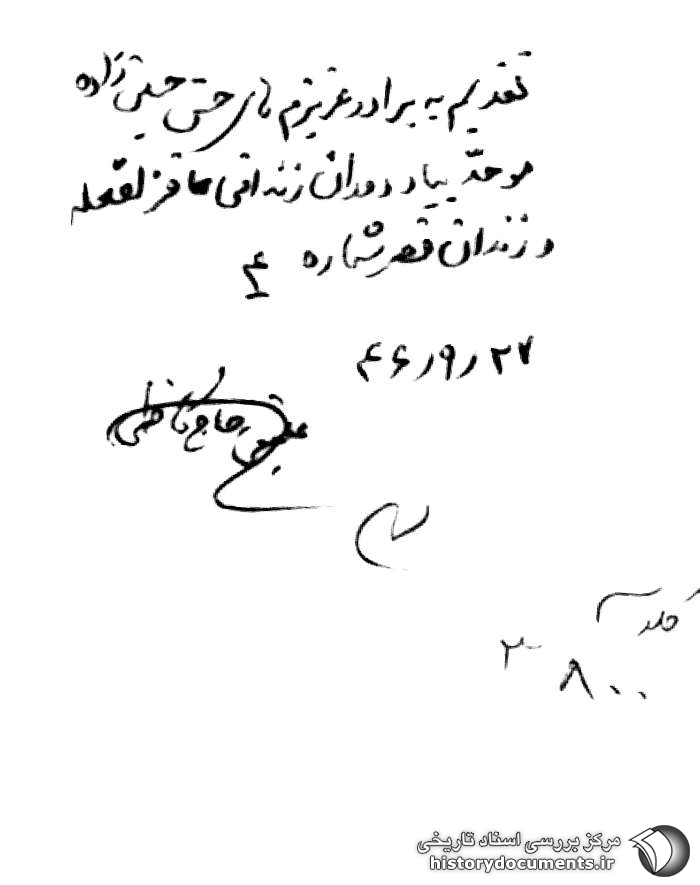 تقدیم به برادر عزیزم های حسن حسین زاده
موحد بیاد دوران زندانی ما قزلقلعه
و زندان قصر شماره ۴
۲۷ ر ۹ ر ۴۶
حاج
جلد
۲ ۸۰۰
مرکز بررسی اسناد تاریخی
historydocuments.ir